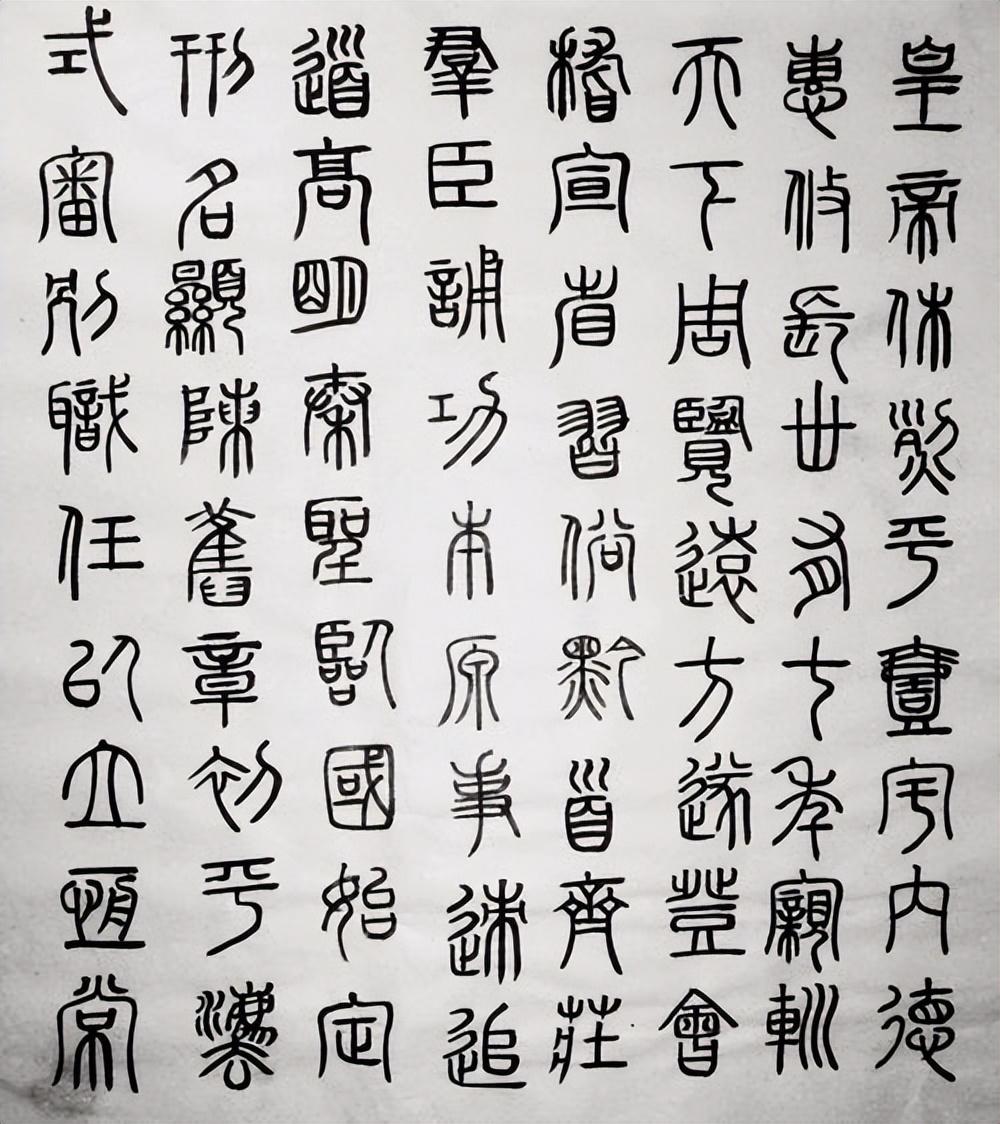 皇帝休烈平壹宇內德
惠攸長丗有七年親巡
天下周覽遠方遂登會
稽宣省習俗黔首齊莊
羣臣誦功本原事迹追
道高明秦聖臨國始定
刑名顯陳舊章初平灋
式審別職任以立恆常